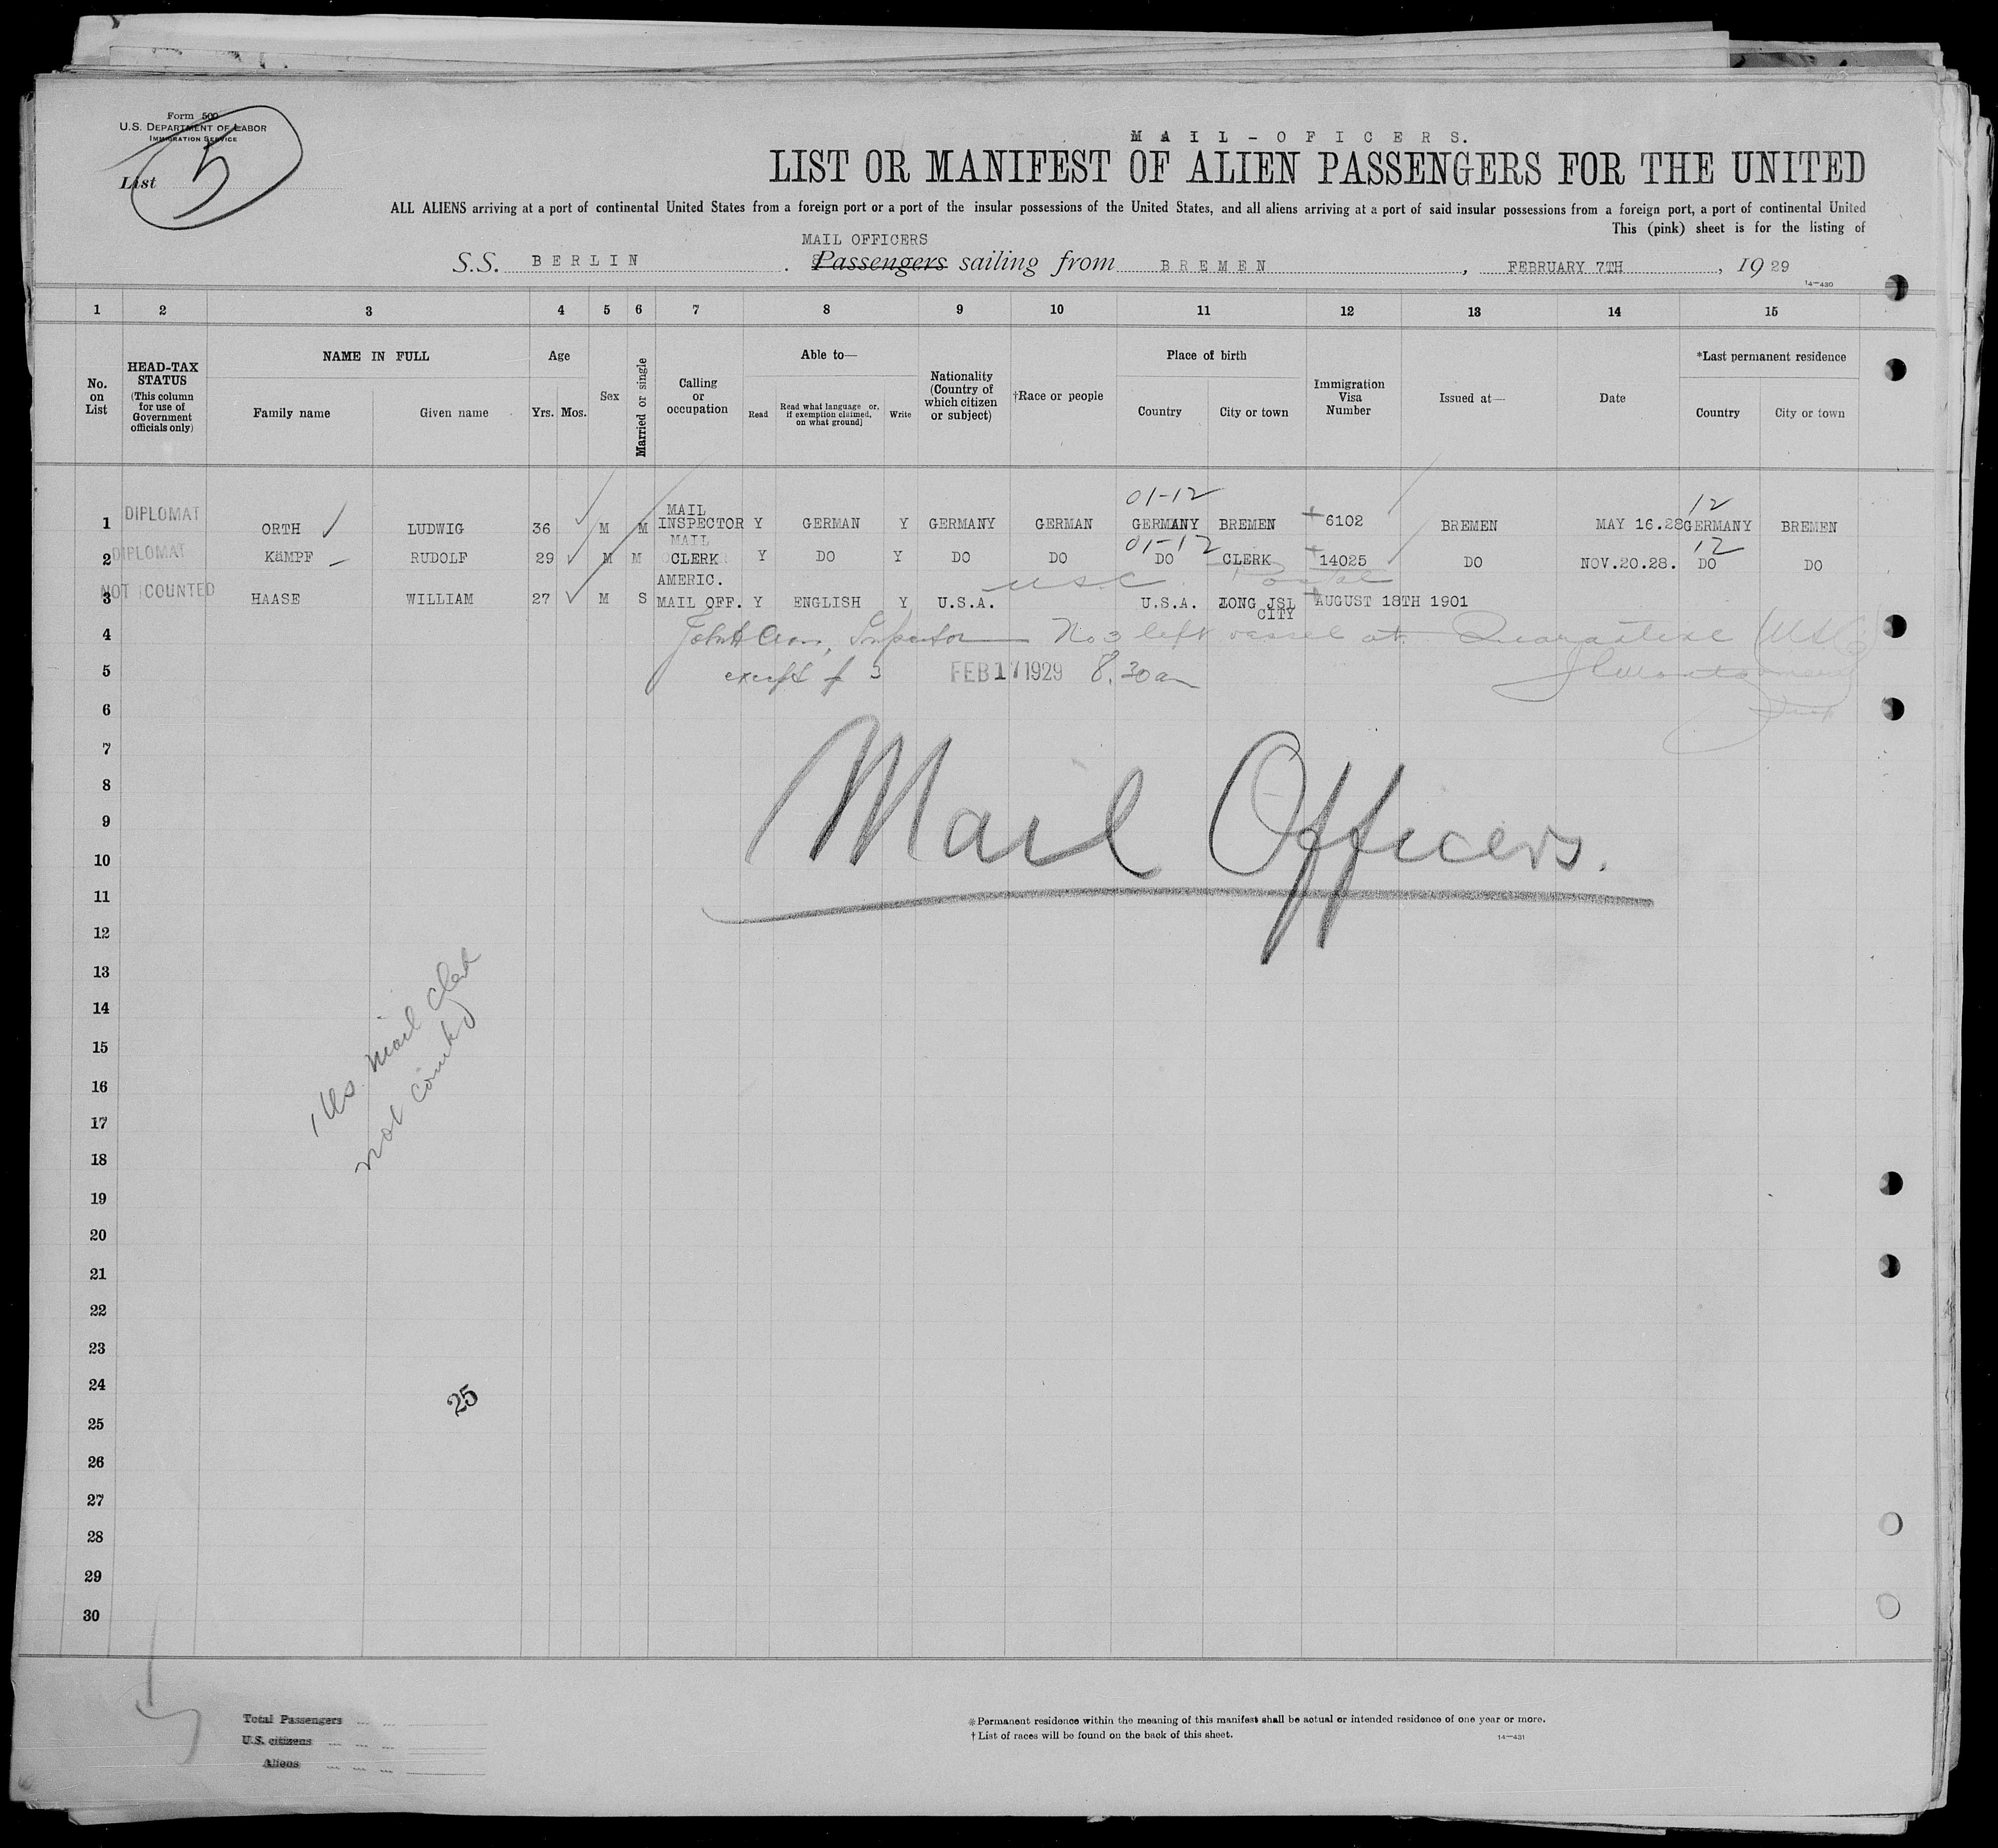 Form 500
U.S. DEPARTMENT OF LABOR
IMMIGRATION SERVICE
List 5
MAIL-OFFICERS.
LIST OR MANIFEST OF ALIEN PASSENGERS FOR THE UNITED
ALL ALIENS arriving at a port of continental United States from a foreign port or a port of the insular possessions of the United States, and all aliens arriving at a port of said insular possessions from a foreign port, a port of continental United
This (pink) sheet is for the listing of
MAIL OFFICERS
S.S. BERLIN. Passengers sailing from BREMEN, FEBRUARY 7TH, 1929
14—430
1 2 3 4 5 6 7 8 9 10 11 12 13 14 15
No. on List
HEAD-TAX STATUS (This column for use of Government officials only)
NAME IN FULL
Family name Given name
Age
Yrs. Mos.
Sex
Married or single
Calling or occupation
Able to—
Read
Read what language or, if exemption claimed, on what ground]
Write
Nationality (Country of which citizen or subject)
†Race or people
Place of birth
Country City or town
Immigration Visa Number
Issued at—
Date
*Last permanent residence
Country City or town
01-12 12
1 DIPLOMAT ORTH LUDWIG 36 M M MAIL INSPECTOR Y GERMAN Y GERMANY GERMAN GERMANY BREMEN 6102 BREMEN MAY 16.28 GERMANY BREMEN
01-12 12
2 DIPLOMAT KäMPF RUDOLF 29 M M MAIL CLERK Y DO Y DO DO DO CLERK 14025 DO NOV.20.28. DO DO
usc Postal
3 NOT COUNTED HAASE WILLIAM 27 M S AMERIC. MAIL OFF. Y ENGLISH Y U.S.A. U.S.A. LONG JSL CITY AUGUST 18TH 1901
4 Inspector No 3 left vessel at Quarantine
5 except # 3 FEB 17 1929 8.30am
6
7
8
Mail Officers.
9
10
11
12
13
14
15
16
17
18
19
20
21
22
23
24
25
26
27
28
29
30
1 US mail clerk
not counted
25
Total Passengers
U.S. citizens
Aliens
*Permanent residence within the meaning of this manifest shall be actual or intended residence of one year or more.
†List of races will be found on the back of this sheet.
14—431